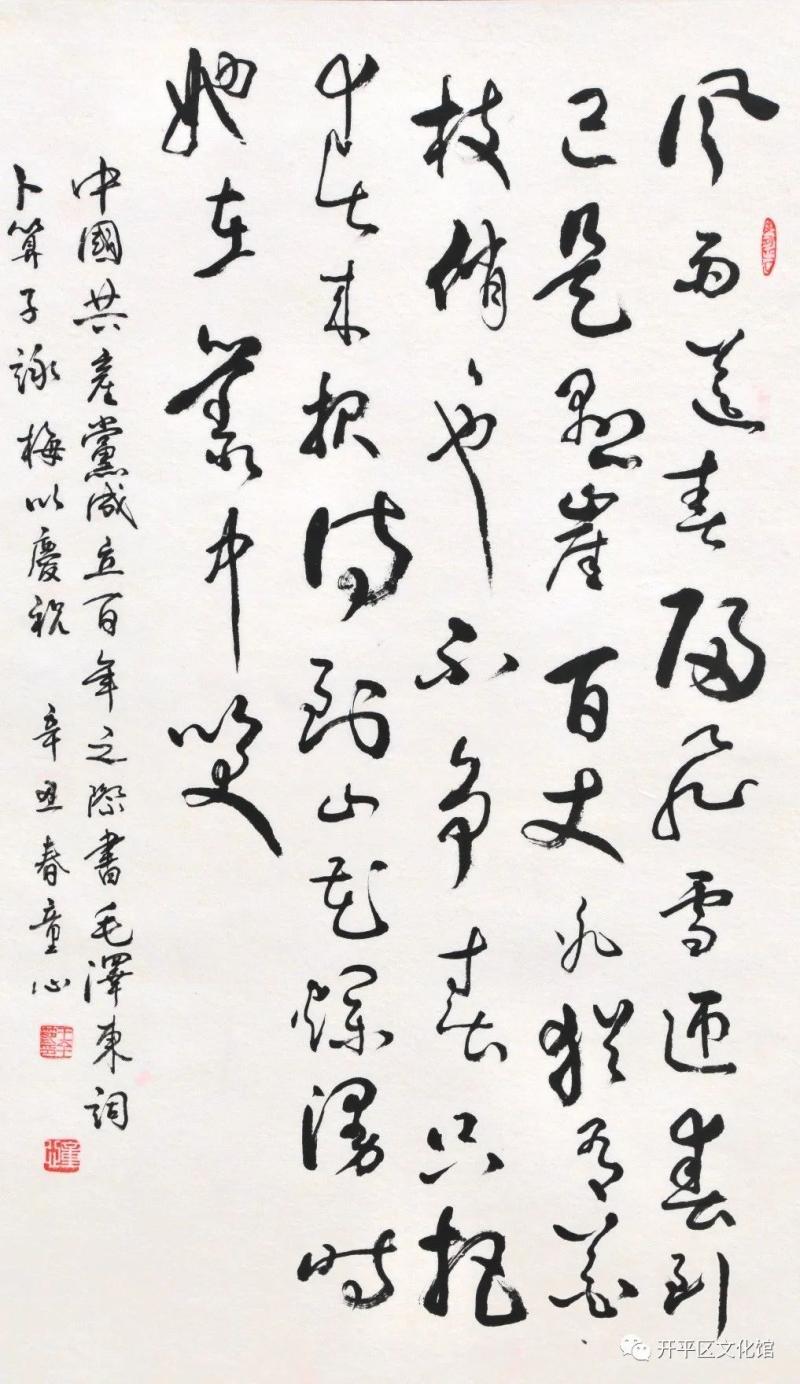 風雨送春歸飛雪迎春到
已是懸崖百丈冰猶有花
枝俏俏也不爭春只把
春來報待到山花爛漫時
她在叢中笑
中國共產黨成立百年之際書毛澤東詞
卜算子詠梅以慶祝 辛丑春童心
开平区文化馆